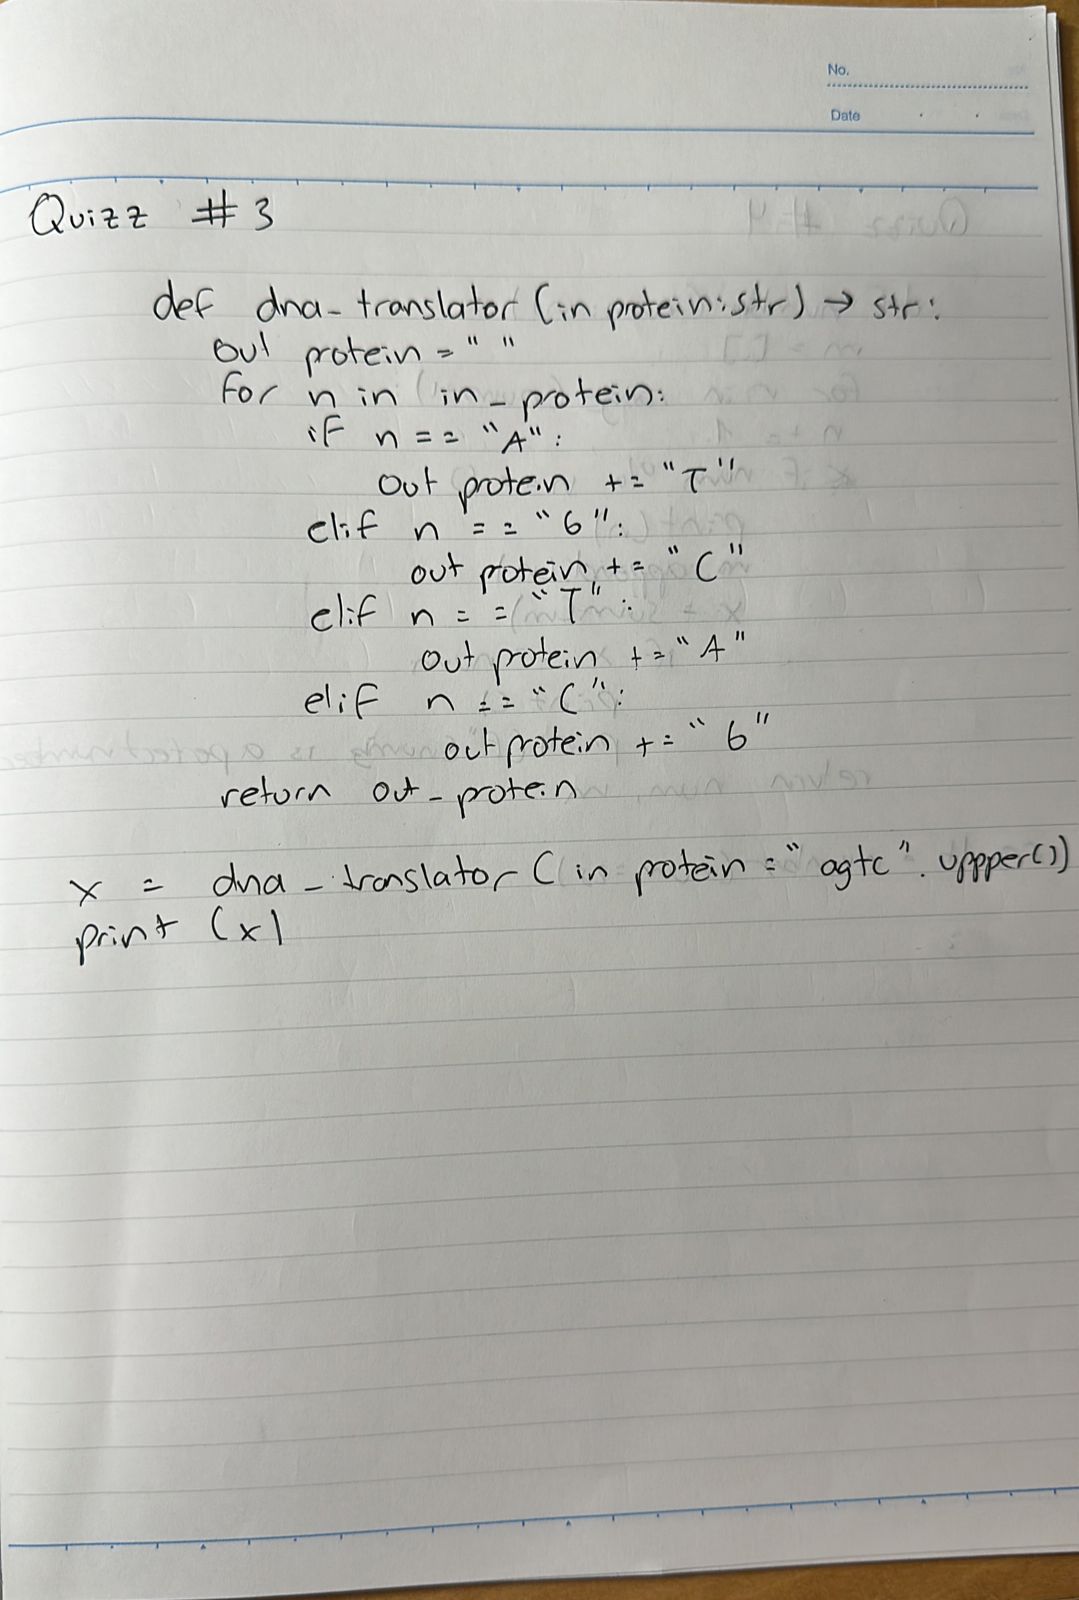 No.
Date
Quizz #3
def dna_translator (in protein:str) → str:
out protein = " "
for n in in_protein:
if n == "A":
out protein += "T"
elif n == "G":
out protein += "C"
elif n == "T":
out protein += "A"
elif n == "C":
out protein += "G"
return out_protein
x = dna_translator (in protein = "agtc". uppper())
print (x)